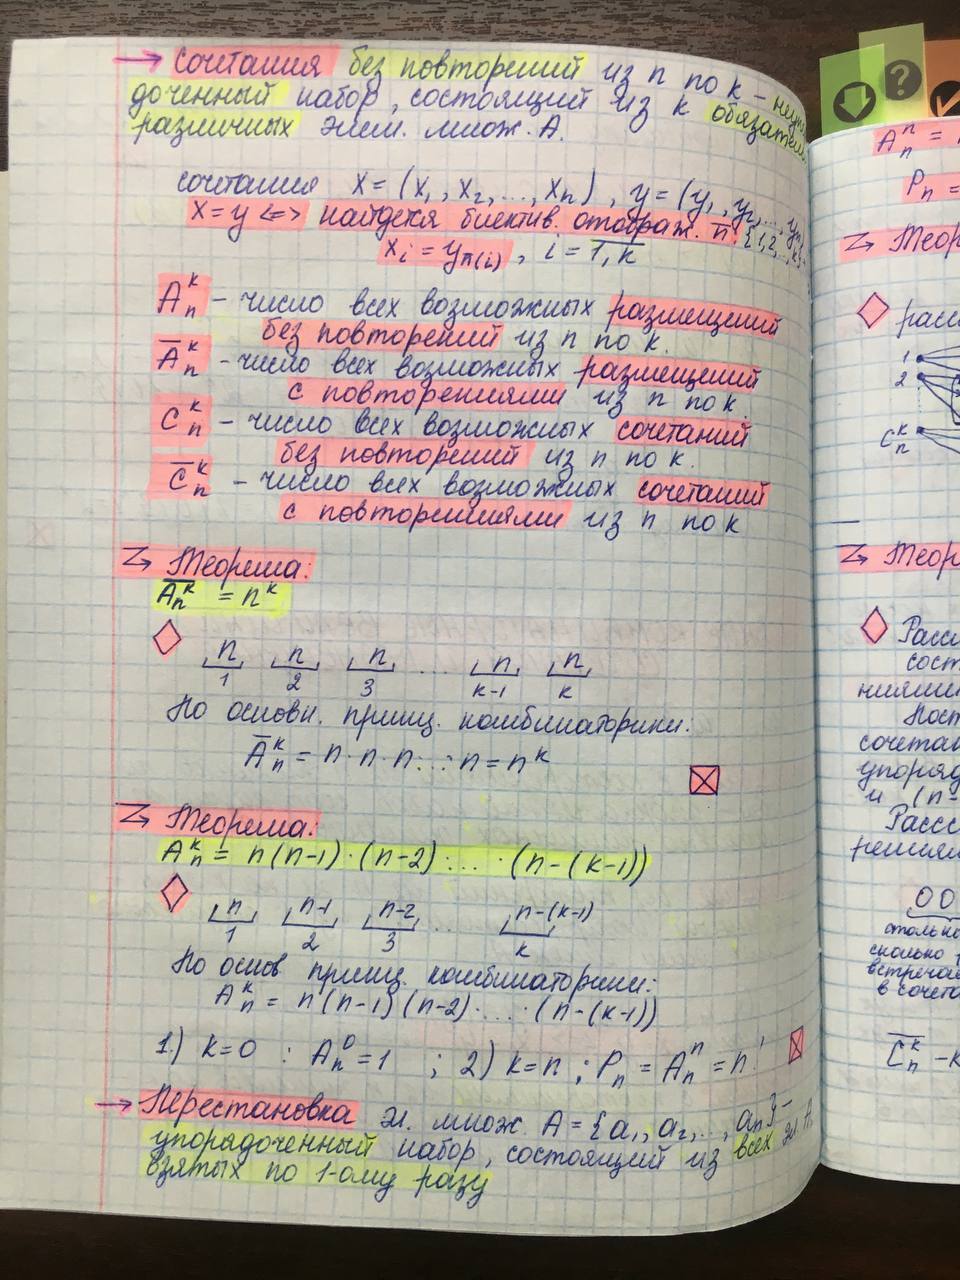 → Сочетания без повторений из n по k – неупо
доченный набор, состоящий из k обязательн
различных элем. множ. А.
сочетания x = (x₁, x₂, ..., xₙ), y = (y₁, y₂, ..., yₙ)
x = y <=> найдется биектив. отображ. π: {1,2,..,k}
xᵢ = y_π(i), i = 1,k
Aₙᵏ – число всех возможных размещений
без повторений из n по k.
A̅ₙᵏ – число всех возможных размещений
с повторениями из n по k.
Cₙᵏ – число всех возможных сочетаний
без повторений из n по k.
C̅ₙᵏ – число всех возможных сочетаний
с повторениями из n по k
Теорема:
A̅ₙᵏ = nᵏ
n n n ... n n
1 2 3 k-1 k
По основн. принц. комбинаторики:
A̅ₙᵏ = n · n · n ... · n = nᵏ
Теорема:
Aₙᵏ = n(n-1)·(n-2)· ... ·(n-(k-1))
n n-1 n-2 ... n-(k-1)
1 2 3 k
По основ принц. комбинаторики:
Aₙᵏ = n(n-1)(n-2)· ... ·(n-(k-1))
1.) k=0 : Aₙ⁰ = 1 ; 2) k=n ; Pₙ = Aₙⁿ = n!
→ Перестановка эл. множ A = {a₁, a₂, .., aₙ} –
упорядоченный набор, состоящий из всех эл. А,
взятых по 1-ому разу
Aₙⁿ =
Pₙ =
Теор
расс
1
2
Cₙᵏ
Теор
Расс
сост
ниями
Пост
сочетан
упоряд
и (n-
Расс
00
столько
сколько
встречае
в сочета
C̅ₙᵏ – к